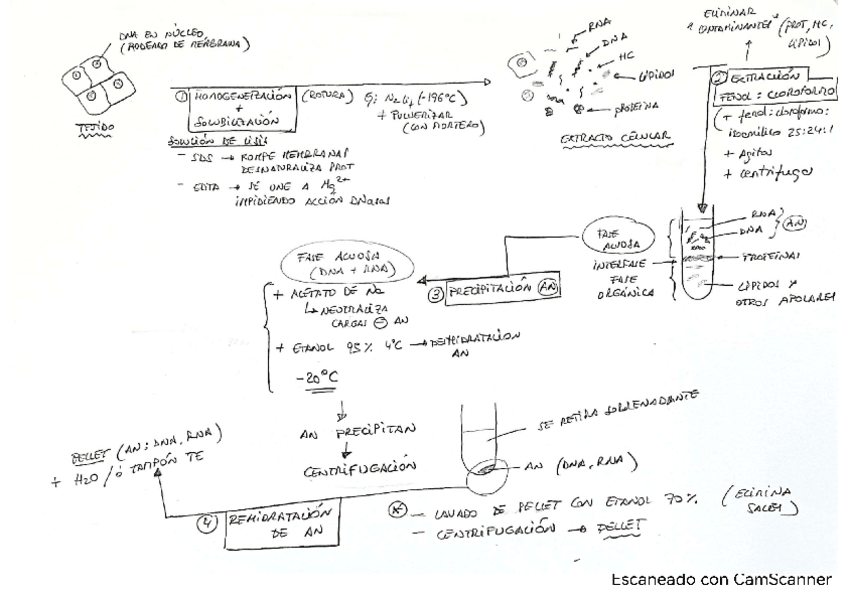 DNA EN NÚCLEO,
(RODEADO DE MEMBRANA)
TEJIDO
① HOMOGENEIZACIÓN
+
SOLUBILIZACIÓN
(ROTURA)
(-196ºC)
+ PULVERIZAR
(CON MORTERO)
SOLUCIÓN DE LISIS
- SDS → ROMPE MEMBRANAS
DESNATURALIZA PROT
- EDTA → SE UNE A Mg2+
IMPIDIENDO ACCIÓN DNasas
RNA
DNA
HC
LÍPIDOS
PROTEÍNA
EXTRACTO CELULAR
ELIMINAR
"CONTAMINANTES" (PROT, HC,
LÍPIDOS)
② EXTRACCIÓN
FENOL: CLOROFORMO
(+ fenol:cloroformo:
isoamílico 25:24:1
+ Agitar
+ centrífuga
RNA
DNA
AN
PROTEÍNAS
LÍPIDOS Y
OTROS APOLARES
FASE
ACUOSA
INTERFASE
FASE
ORGÁNICA
③ PRECIPITACIÓN AN
FASE ACUOSA
(DNA + RNA)
+ ACETATO DE Na
↳ NEUTRALIZA
CARGAS ⊖ AN
+ ETANOL 95% 4ºC → DESHIDRATACION
AN
-20ºC
AN PRECIPITAN
CENTRIFUGACIÓN
SE RETIRA SOBRENADANTE
AN (DNA, RNA)
PELLET (AN: DNA, RNA)
+ H2O / ó TAMPÓN TE
④ REHIDRATACIÓN
DE AN
* - LAVADO DE PELLET CON ETANOL 70% (ELIMINA
SALES)
- CENTRIFUGACIÓN → PELLET
Escaneado con CamScanner